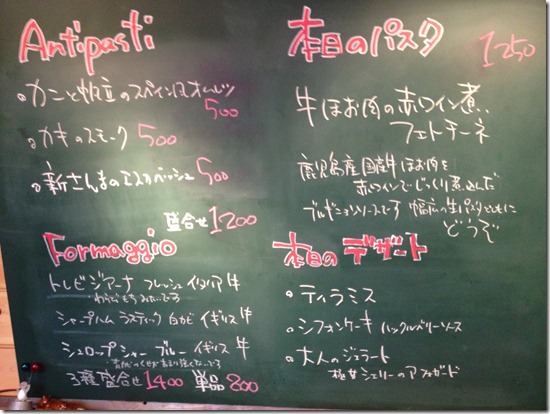 Antipasti
・カニと帆立のスペイン風オムレツ
500
・カキのスモーク 500
・新さんまのエスカベッシュ 500
盛合せ 1200
Formaggio
トレビジアーナ フレッシュ イタリア 牛
シャープハム ラスティック 白カビ イギリス 牛
シュロップシャー ブルー イギリス 牛
3種盛合せ 1400 単品 800
本日のパスタ 1250
牛ほお肉の赤ワイン煮
フェトチーネ
鹿児島産国産牛ほお肉を
赤ワインでじっくり煮込んだ
ブルギニョンソースです 幅広の生パスタとともに
どうぞ
本日のデザート
・ティラミス
・シフォンケーキ ハックルベリーソース
・大人のジェラート
極甘シェリーのアフォガード